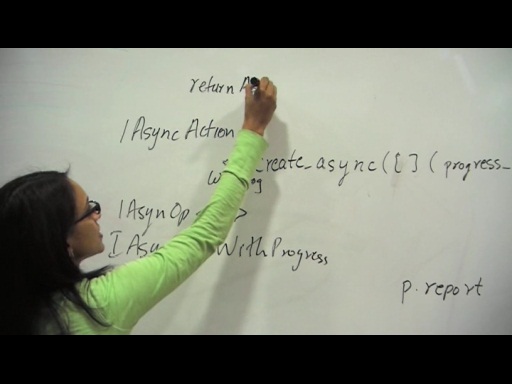 return A
IAsyncAction
create_async([](progress_
IAsynOp < >
IAsy WithProgress
p.report